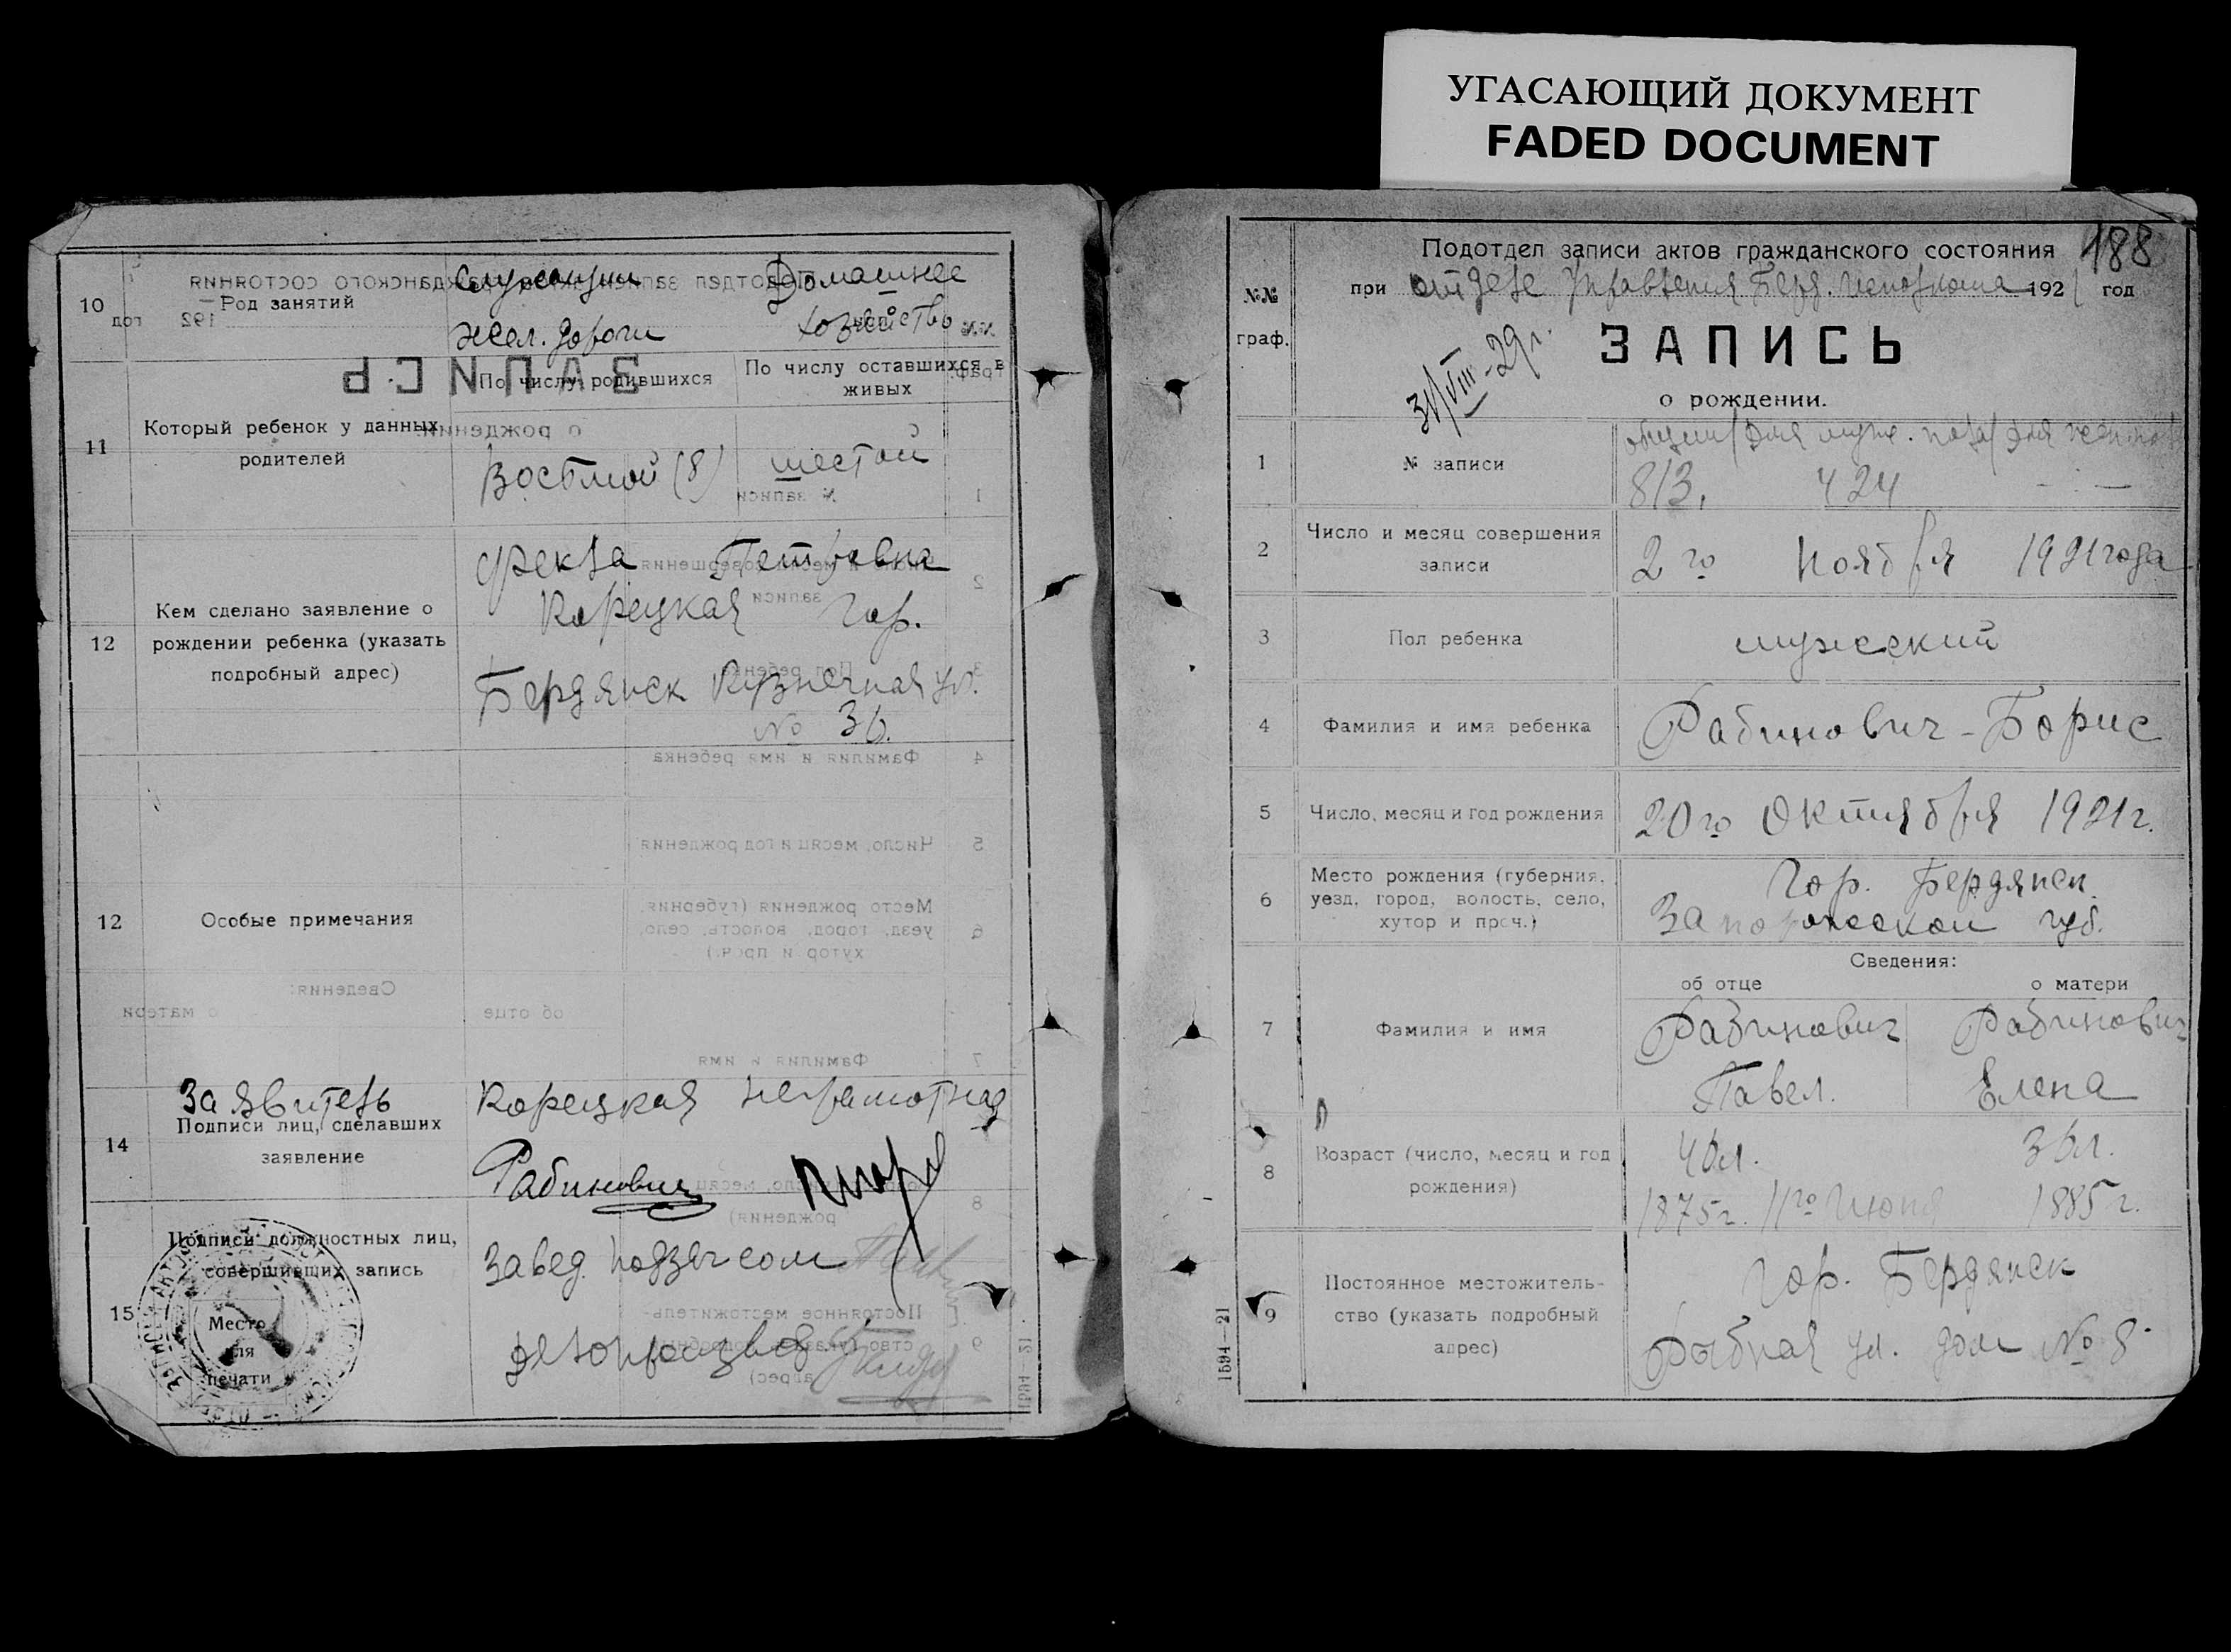 УГАСАЮЩИЙ ДОКУМЕНТ
FADED DOCUMENT
10
Род занятий
Служащий
жел. дороги
Домашнее
хозяйство
11
Который ребенок у данных
родителей
По числу родившихся
По числу оставшихся в
живых
Восьмой (8)
шестой
12
Кем сделано заявление о
рождении ребенка (указать
подробный адрес)
Фекла Петровна
Корецкая гор.
Бердянск Кузнечная ул.
№ 36.
12
Особые примечания
14
Заявитель
Подписи лиц, сделавших
заявление
Корецкая неграмотная
Рабинович
15
Подписи должностных лиц,
совершивших запись
Место
для
печати
Завед. подзагсом
Делопроизвод
1594—21
188
Подотдел записи актов гражданского состояния
при отделе Управления Берд. Исполкома 1921 год
№№
граф.
31/VIII-29 г.
ЗАПИСЬ
о рождении.
1
№ записи
общий/для муж. пола/для жен. пола
813, 424 —
2
Число и месяц совершения
записи
2го Ноября 1921 года
3
Пол ребенка
мужеский
4
Фамилия и имя ребенка
Рабинович - Борис
5
Число, месяц и год рождения
20го Октября 1921 г.
6
Место рождения (губерния,
уезд, город, волость, село,
хутор и проч.)
Гор. Бердянск
Запорожской губ.
Сведения:
об отце
о матери
7
Фамилия и имя
Рабинович
Павел.
Рабинович
Елена
8
Возраст (число, месяц и год
рождения)
46л.
1875 г. 11го Июня
36л.
1885 г.
9
Постоянное местожитель-
ство (указать подробный
адрес)
Гор. Бердянск
Рыбная ул. дом № 8